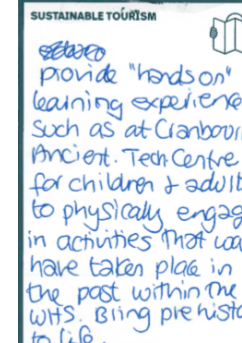 SUSTAINABLE TOURISM
provide "hands on"
learning experience
such as at Cranbour
Ancient. Tech Centre
for children & adult
to physically engag
in activities that wou
have taken place in
the past within the
WHS. Bring prehisto
to life.